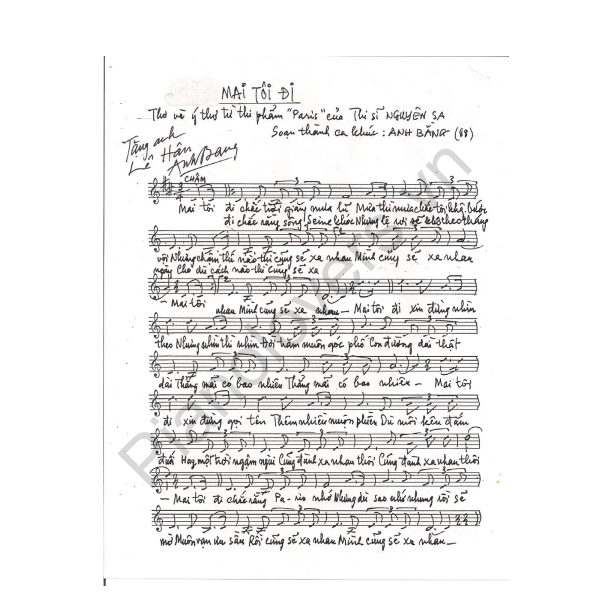 MAI TÔI ĐI
Thơ và ý thơ từ thi phẩm "Paris" của Thi sĩ NGUYÊN SA
Soạn thành ca khúc: ANH BẰNG (88)
Tặng anh
Lê Hân
Anh Bang
CHẬM
Mai tôi đi chắc trời giăng mưa lũ Mưa thì mưa chắc tôi không bước
đi chắc rằng sông Seine khóc Nhưng lệ rơi sẽ theo tháng
vội Nhưng chậm thế nào thì cũng sẽ xa nhau Mình cũng sẽ xa nhau
ngày Cho dù cách nào thì cũng sẽ xa
Mai tôi
nhau Mình cũng sẽ xa nhau – Mai tôi đi xin đừng nhìn
theo Nhưng nhìn thì nhìn Đời trăm muôn góc phố Con đường dài thật
dài Thằng mãi có bao nhiêu Thằng mãi có bao nhiêu – Mai tôi
đi xin đừng gọi tên Thêm nhiều muộn phiền Dù môi kêu đắm
đuối Hay một trời ngậm ngùi Cũng đành xa nhau thôi Cũng đành xa nhau thôi
– Mai tôi đi chắc rằng Pa-ris nhớ Nhưng dù sao nhớ nhung rồi sẽ
mờ Muôn vạn ưu sầu Rồi cũng sẽ xa nhau Mình cũng sẽ xa nhau –
Pianolovers.vn